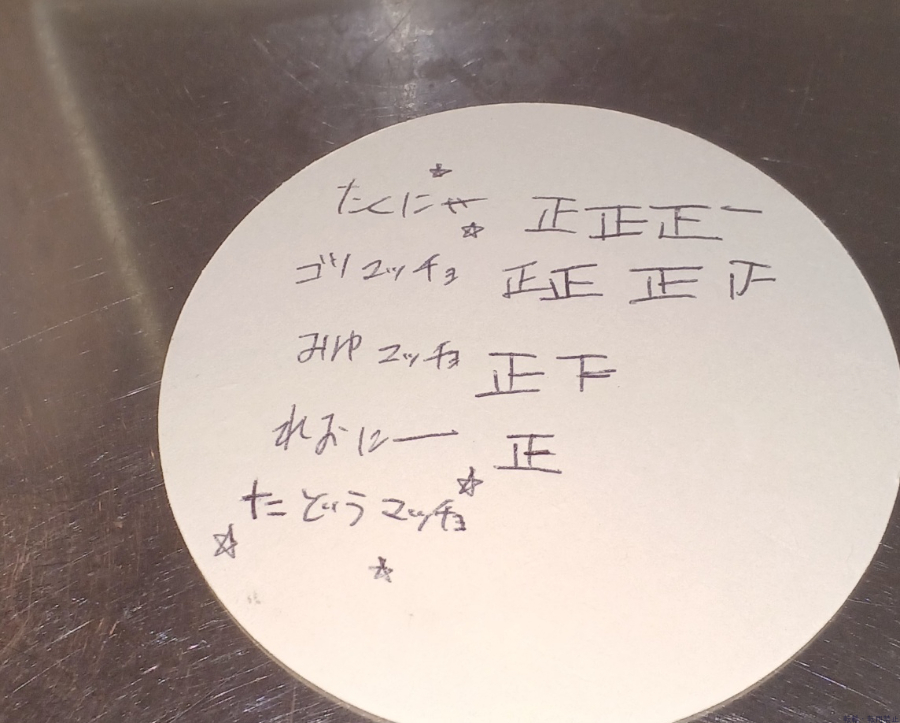 たくにゃ 正正正一
ゴリマッチョ 正正正正
みゆマッチョ 正下
れおにー 正
たどうマッチョ